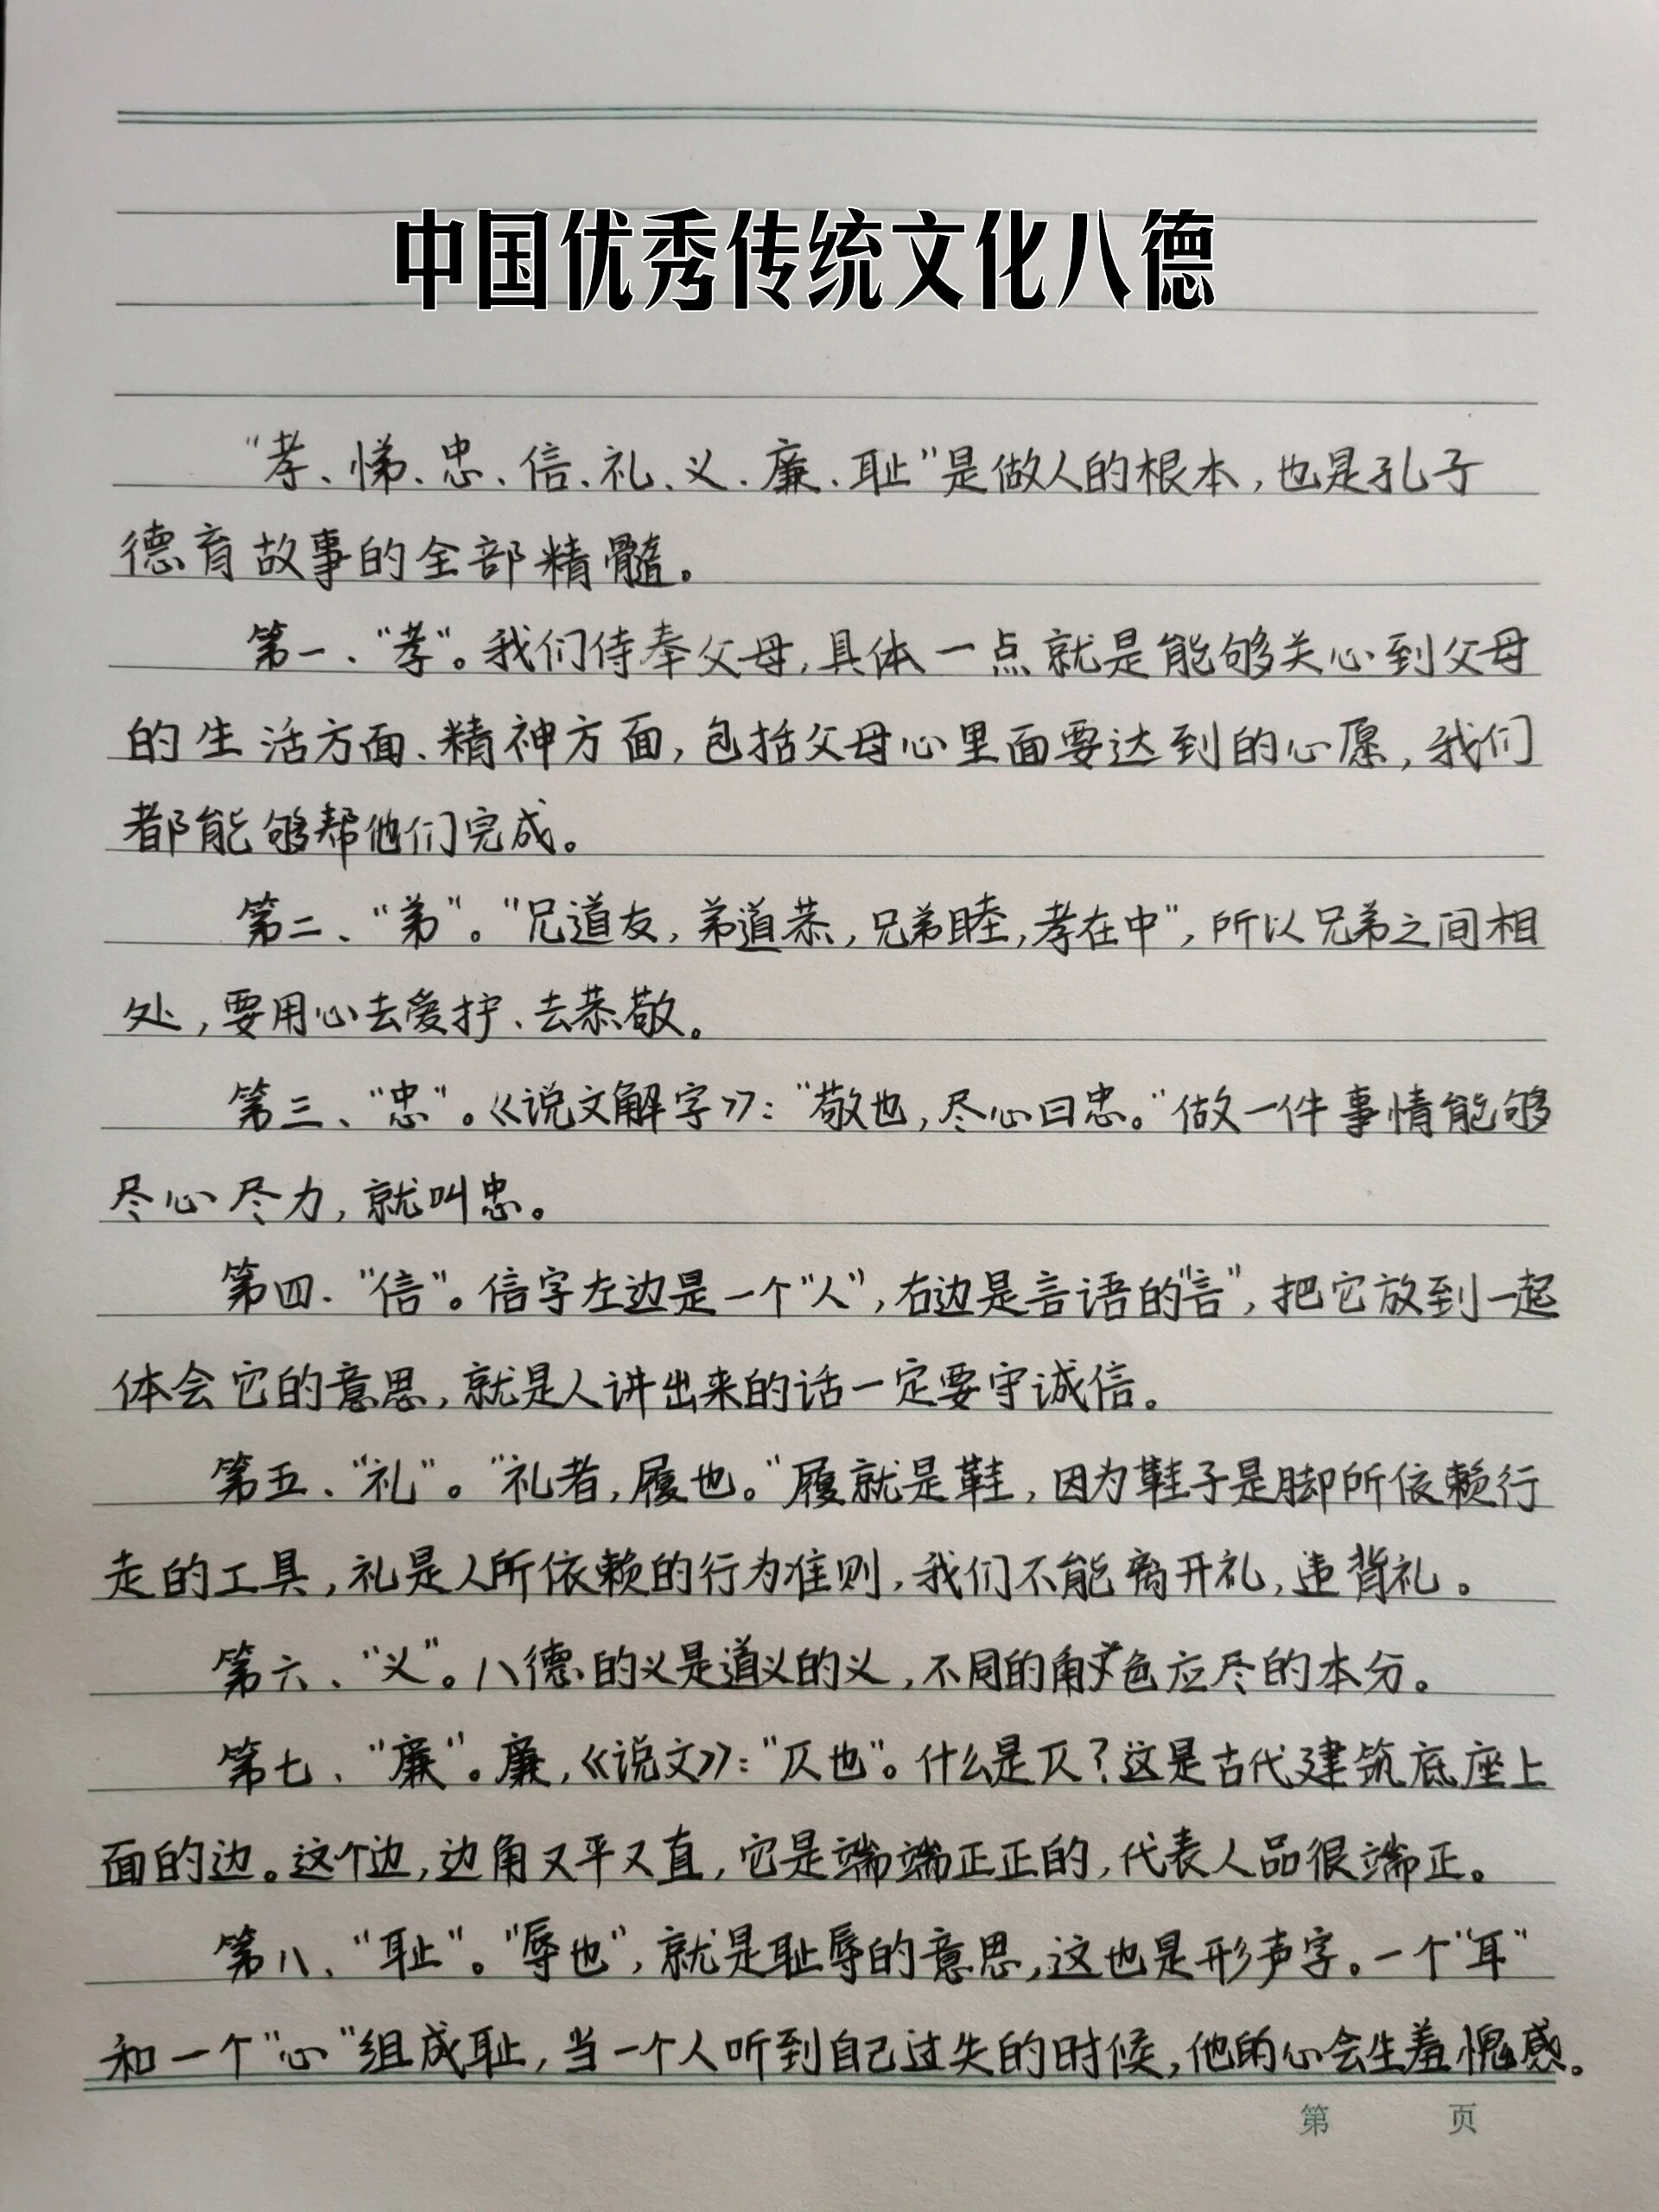 中国优秀传统文化八德
“孝、悌、忠、信、礼、义、廉、耻”是做人的根本，也是孔子
德育故事的全部精髓。
第一、“孝”。我们侍奉父母，具体一点就是能够关心到父母
的生活方面、精神方面，包括父母心里面要达到的心愿，我们
都能够帮他们完成。
第二、“弟”。“兄道友，弟道恭，兄弟睦，孝在中”，所以兄弟之间相
处，要用心去爱护、去恭敬。
第三、“忠”。《说文解字》：“敬也，尽心曰忠。”做一件事情能够
尽心尽力，就叫忠。
第四、“信”。信字左边是一个“人”，右边是言语的“言”，把它放到一起
体会它的意思，就是人讲出来的话一定要守诚信。
第五、“礼”。“礼者，履也。”履就是鞋，因为鞋子是脚所依赖行
走的工具，礼是人所依赖的行为准则，我们不能离开礼，违背礼。
第六、“义”。八德的义是道义的义，不同的角色应尽的本分。
第七、“廉”。廉，《说文》：“仄也”。什么是仄？这是古代建筑底座上
面的边。这个边，边角又平又直，它是端端正正的，代表人品很端正。
第八、“耻”。“辱也”，就是耻辱的意思，这也是形声字。一个“耳”
和一个“心”组成耻，当一个人听到自己过失的时候，他的心会生羞愧感。
第 页